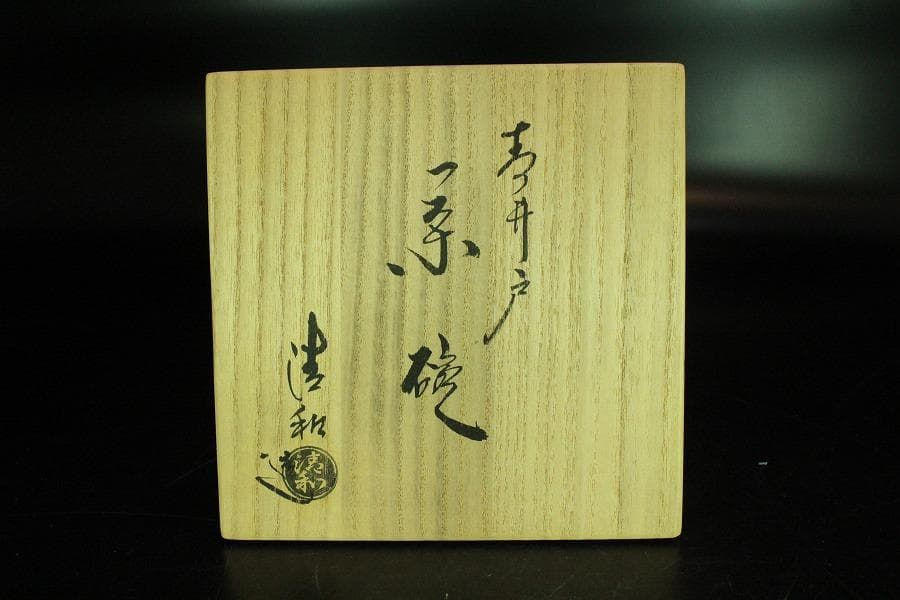 青井戸
茶碗
清和造
清和